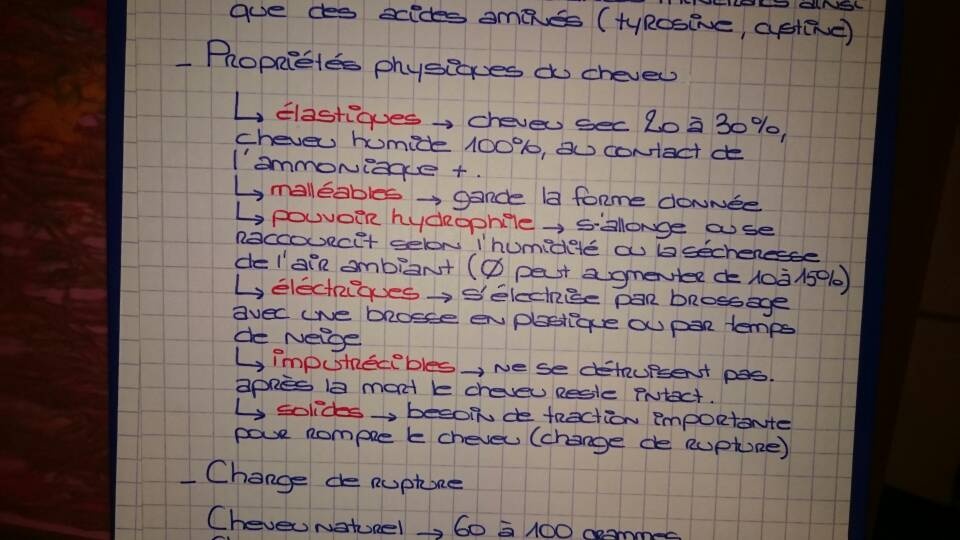 que des acides aminés (tyrosine, cystine)
- Propriétés physiques du cheveu
↳ élastiques → cheveu sec 20 à 30%,
cheveu humide 100%, au contact de
l'ammoniaque +.
↳ malléables → garde la forme donnée
↳ pouvoir hydrophile → s'allonge ou se
raccourcit selon l'humidité ou la sécheresse
de l'air ambiant (Ø peut augmenter de 10 à 15%)
↳ éléctriques → s'éléctrise par brossage
avec une brosse en plastique ou par temps
de neige
↳ imputrécibles → ne se détruisent pas.
après la mort le cheveu reste intact.
↳ solides → besoin de traction importante
pour rompre le cheveu (charge de rupture)
- Charge de rupture
Cheveu naturel → 60 à 100 grammes